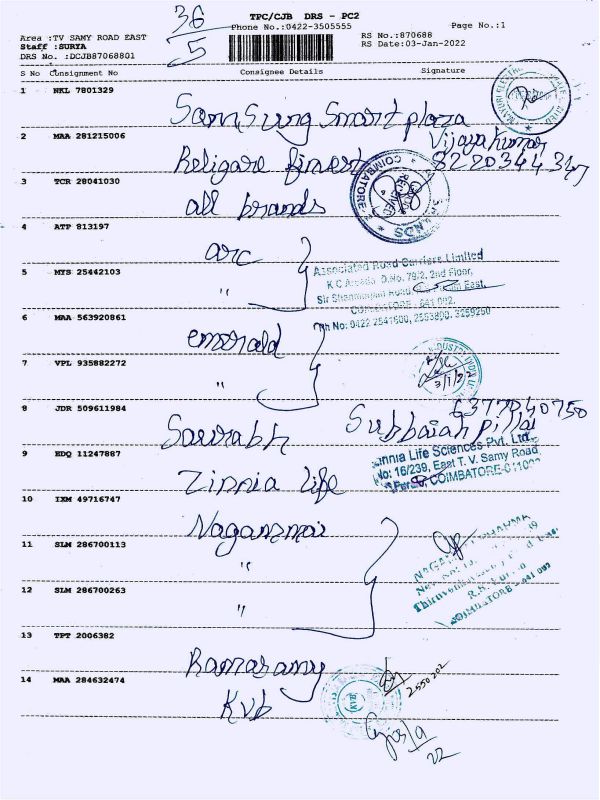 36
5
TPC/CJB DRS - PC2
Phone No.:0422-3505555
Page No.:1
Area :TV SAMY ROAD EAST
RS No.:870688
Staff :SURYA
RS Date:03-Jan-2022
DRS No. :DCJB87068801
S No Consignment No Consignee Details Signature
1 NKL 7801329
Samsung Smart plaza
2 MAA 281215006
Vijayakumar
Religare finvest
3 TCR 28041030
all brands
COIMBATORE
4 ATP 813197
arc
Associated Road Carriers Limited
5 MYS 25442103
"
2nd Floor,
6 MAA 563920861
emerald
Ph No: 0422 2541600,
7 VPL 935882272
"
3/1/22
8 JDR 509611984
6377040750
Saurabh
Subbaiah pillai
9 EDQ 11247887
Zinnia Life Sciences Pvt. Ltd.
No: 16/239, East T. V. Samy Road
COIMBATORE-641002
Zinnia life
10 IXM 49716747
Naganmai
11 SLM 286700113
"
12 SLM 286700263
"
13 TPT 2006382
Ramasamy
14 MAA 284632474
2550202
Kvb
22